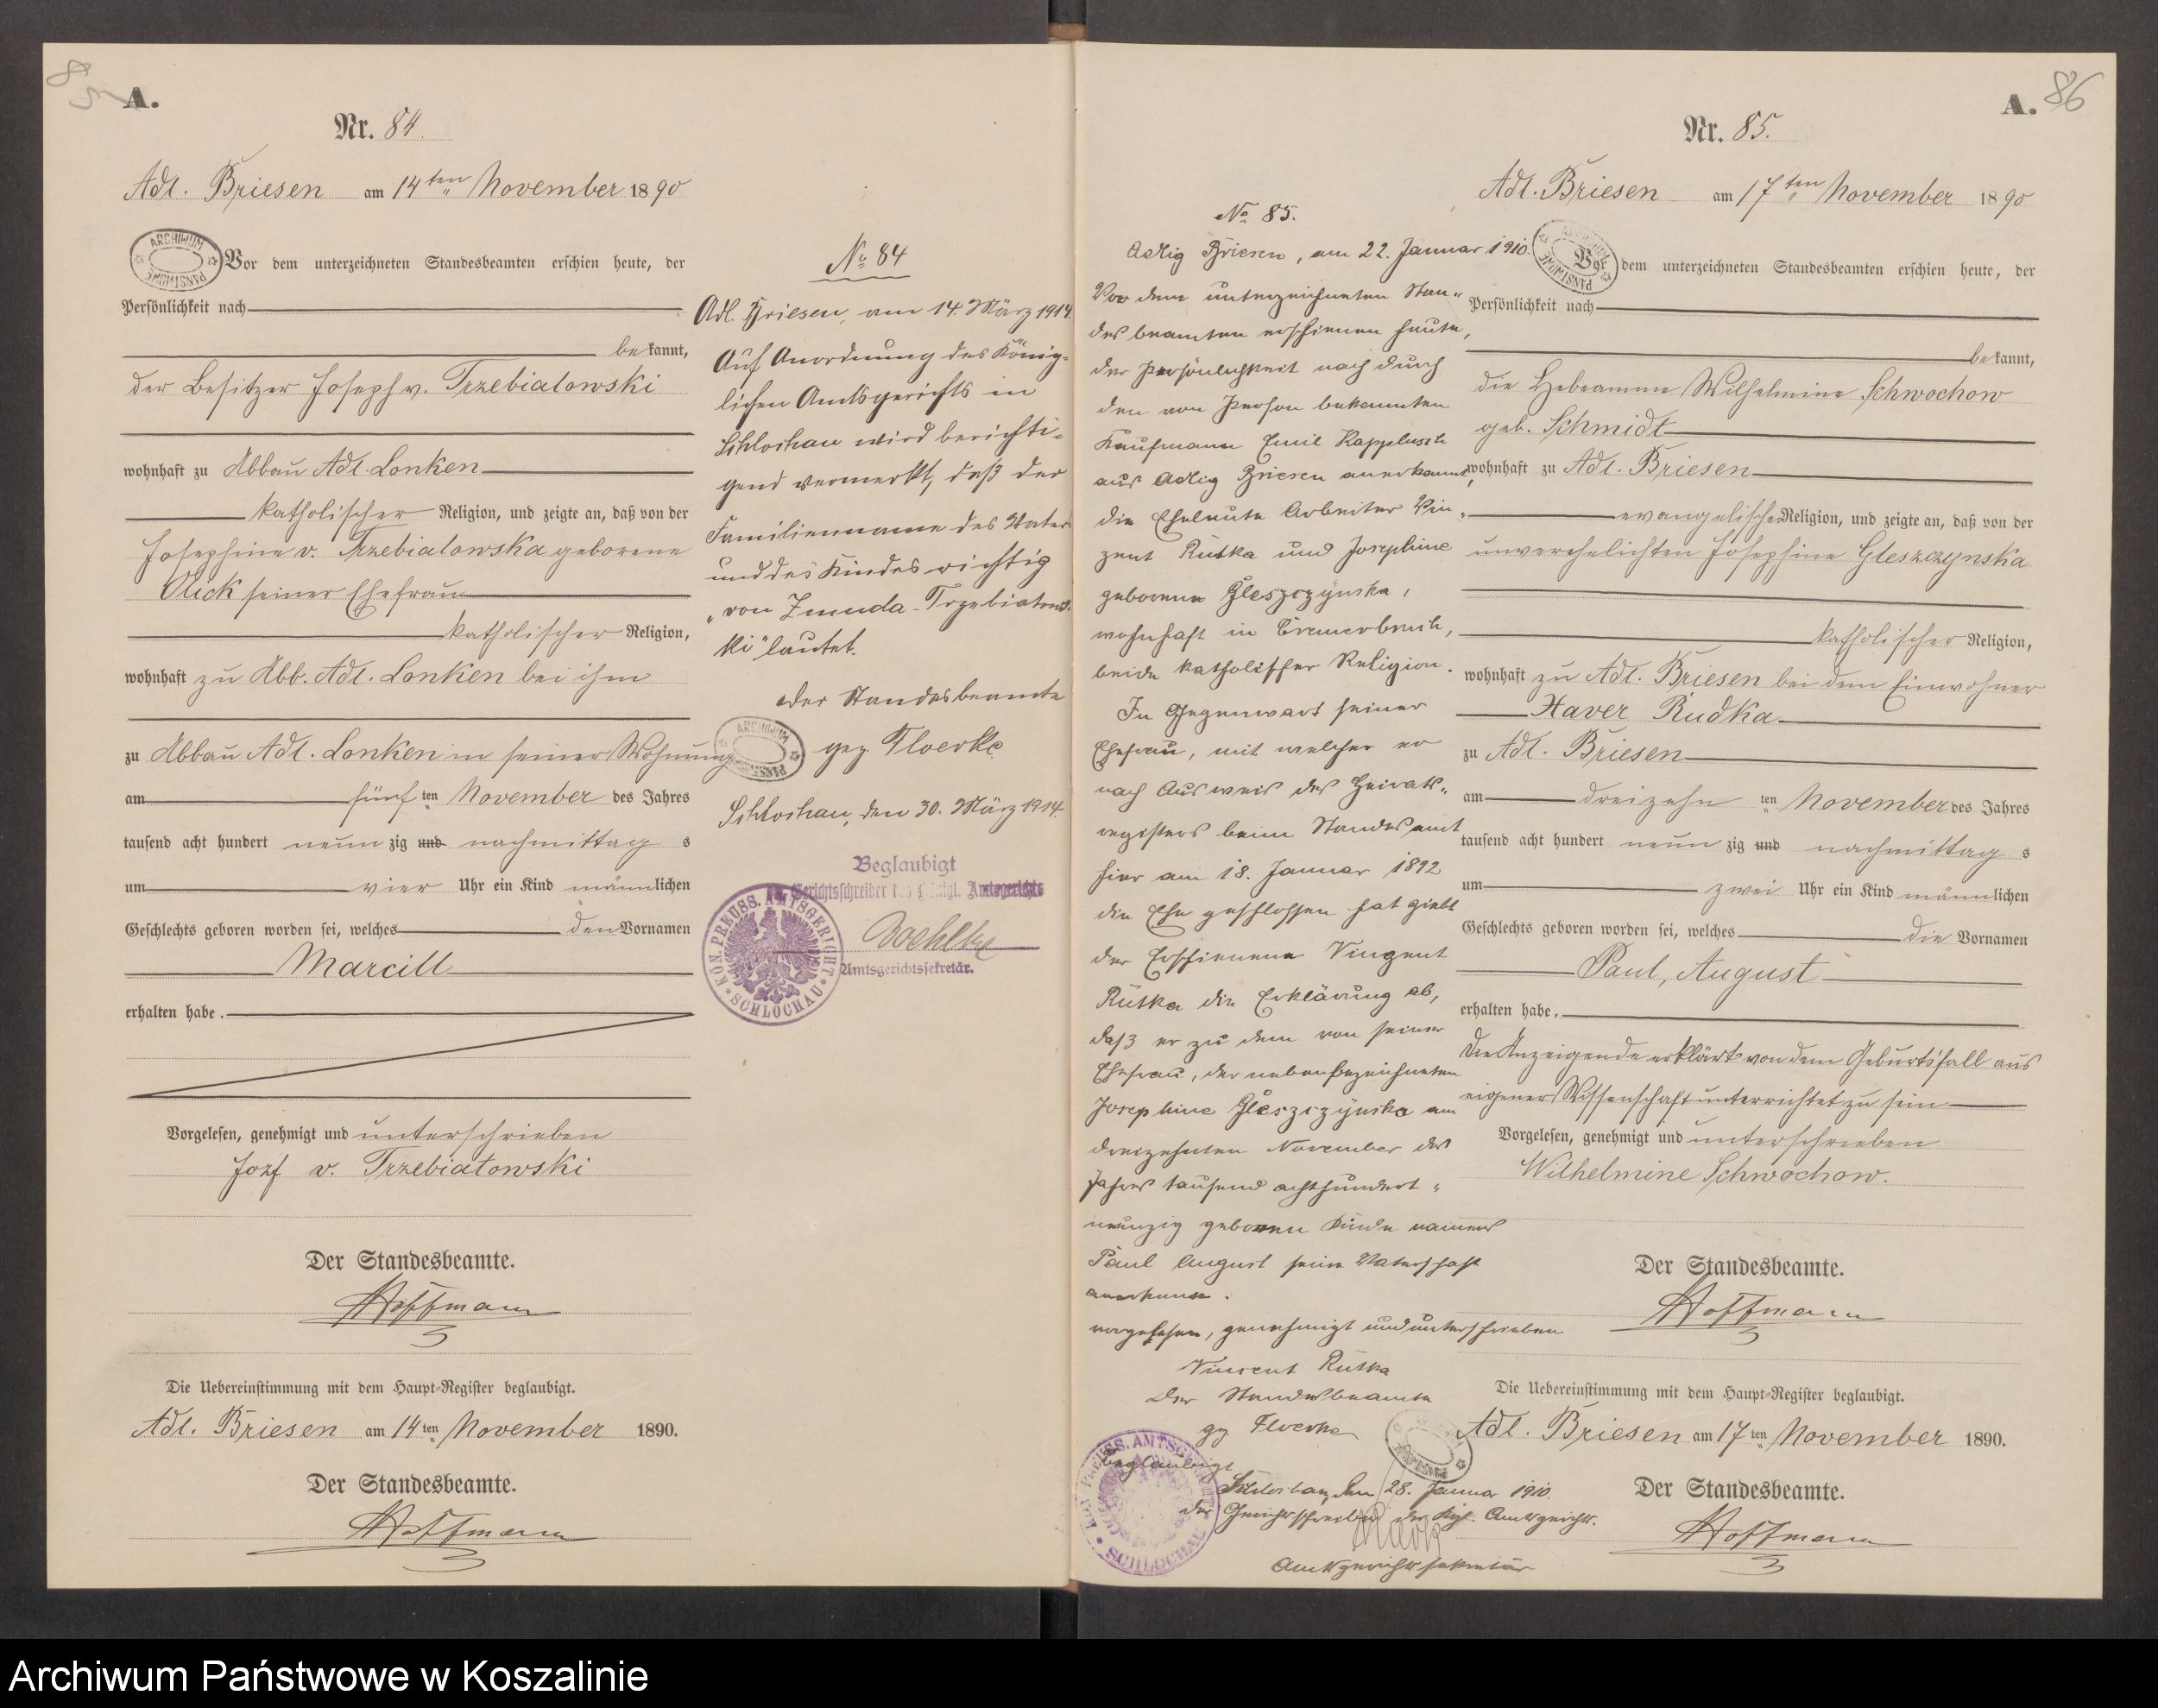 85
A.
Nr. 84.
Adl. Briesen am 14ten November 1890
ARCHIWUM PAŃSTWOWE
Vor dem unterzeichneten Standesbeamten erschien heute, der
Persönlichkeit nach
bekannt,
der Besitzer Joseph v. Trzebiatowski
wohnhaft zu Abbau Adl. Lonken
katholischer Religion, und zeigte an, daß von der
Josephine v. Trzebiatowska geborene
Olick seiner Ehefrau
katholischer Religion,
wohnhaft zu Abb. Adl. Lonken bei ihm
zu Abbau Adl. Lonken in seiner Wohnung
am fünften November des Jahres
tausend acht hundert neunzig und nachmittags
um vier Uhr ein Kind männlichen
Geschlechts geboren worden sei, welches den Vornamen
Marcill
erhalten habe.
Vorgelesen, genehmigt und unterschrieben
Jozf v. Trzebiatowski
Der Standesbeamte.
Hoffmann
Die Uebereinstimmung mit dem Haupt-Register beglaubigt.
Adl. Briesen am 14ten November 1890.
Der Standesbeamte.
Hoffmann
No 84
Adl. Briesen, am 14. März 1914.
Auf Anordnung des König-
lichen Amtsgerichts in
Schlochau wird berichti-
gend vermerkt, daß der
Familienname des Vaters
und des Kindes richtig
"von Zmuda-Trzebiatows-
ki" lautet.
Der Standesbeamte
ARCHIWUM PAŃSTWOWE
gez. Floerke
Schlochau, den 30. März 1914.
Beglaubigt
Gerichtsschreiber des Königl. Amtsgerichts
KÖN. PREUSS. AMTSGERICHT * SCHLOCHAU *
Amtsgerichtssekretär.
No 85.
Adlig Briesen, am 22. Januar 1910.
Vor dem unterzeichneten Stan-
desbeamten erschienen heute,
der Persönlichkeit nach durch
den von Person bekannten
Kaufmann Emil
aus Adlig Briesen anerkannt,
die Eheleute Arbeiter Vin-
zent Rutka und Josephine
geborene Gleszczynska,
wohnhaft in
beide katholischer Religion.
In Gegenwart seiner
Ehefrau, mit welcher er
nach Ausweis des Heirats-
registers beim Standesamt
hier am 18. Januar 1892
die Ehe geschlossen hat giebt
der Erschienene Vinzent
Rutka die Erklärung ab,
daß er zu dem von seiner
Ehefrau, der nebenbezeichneten
Josephine Gleszczynska am
dreizehnten November des
Jahres tausend achthundert-
neunzig geborenen Kinde namens
Paul August seine Vaterschaft
anerkenne.
Vorgelesen, genehmigt und unterschrieben
Vincent Rutka
Der Standesbeamte
gez Floerke
Beglaubigt
Schlochau, den 28. Januar 1910.
Der Gerichtsschreiber des Kgl. Amtsgerichts.
Amtsgerichtssekretär
KÖN. PREUSS. AMTSGERICHT * SCHLOCHAU *
A. 86
Nr. 85.
Adl. Briesen am 17ten November 1890
ARCHIWUM PAŃSTWOWE
Vor dem unterzeichneten Standesbeamten erschien heute, der
Persönlichkeit nach
bekannt,
die Hebeamme Wilhelmine Schwochow
geb. Schmidt
wohnhaft zu Adl. Briesen
evangelischer Religion, und zeigte an, daß von der
unverehelichten Josephine Gleszczynska
katholischer Religion,
wohnhaft zu Adl. Briesen bei dem Einwohner
Xaver Rudka
zu Adl. Briesen
am dreizehnten November des Jahres
tausend acht hundert neunzig und nachmittags
um zwei Uhr ein Kind männlichen
Geschlechts geboren worden sei, welches die Vornamen
Paul, August
erhalten habe.
Die Anzeigende erklärt von dem Geburtsfall aus
eigener Wissenschaft unterrichtet zu sein
Vorgelesen, genehmigt und unterschrieben
Wilhelmine Schwochow.
Der Standesbeamte.
Hoffmann
Die Uebereinstimmung mit dem Haupt-Register beglaubigt.
ARCHIWUM PAŃSTWOWE
Adl. Briesen am 17ten November 1890.
Der Standesbeamte.
Hoffmann
Archiwum Państwowe w Koszalinie